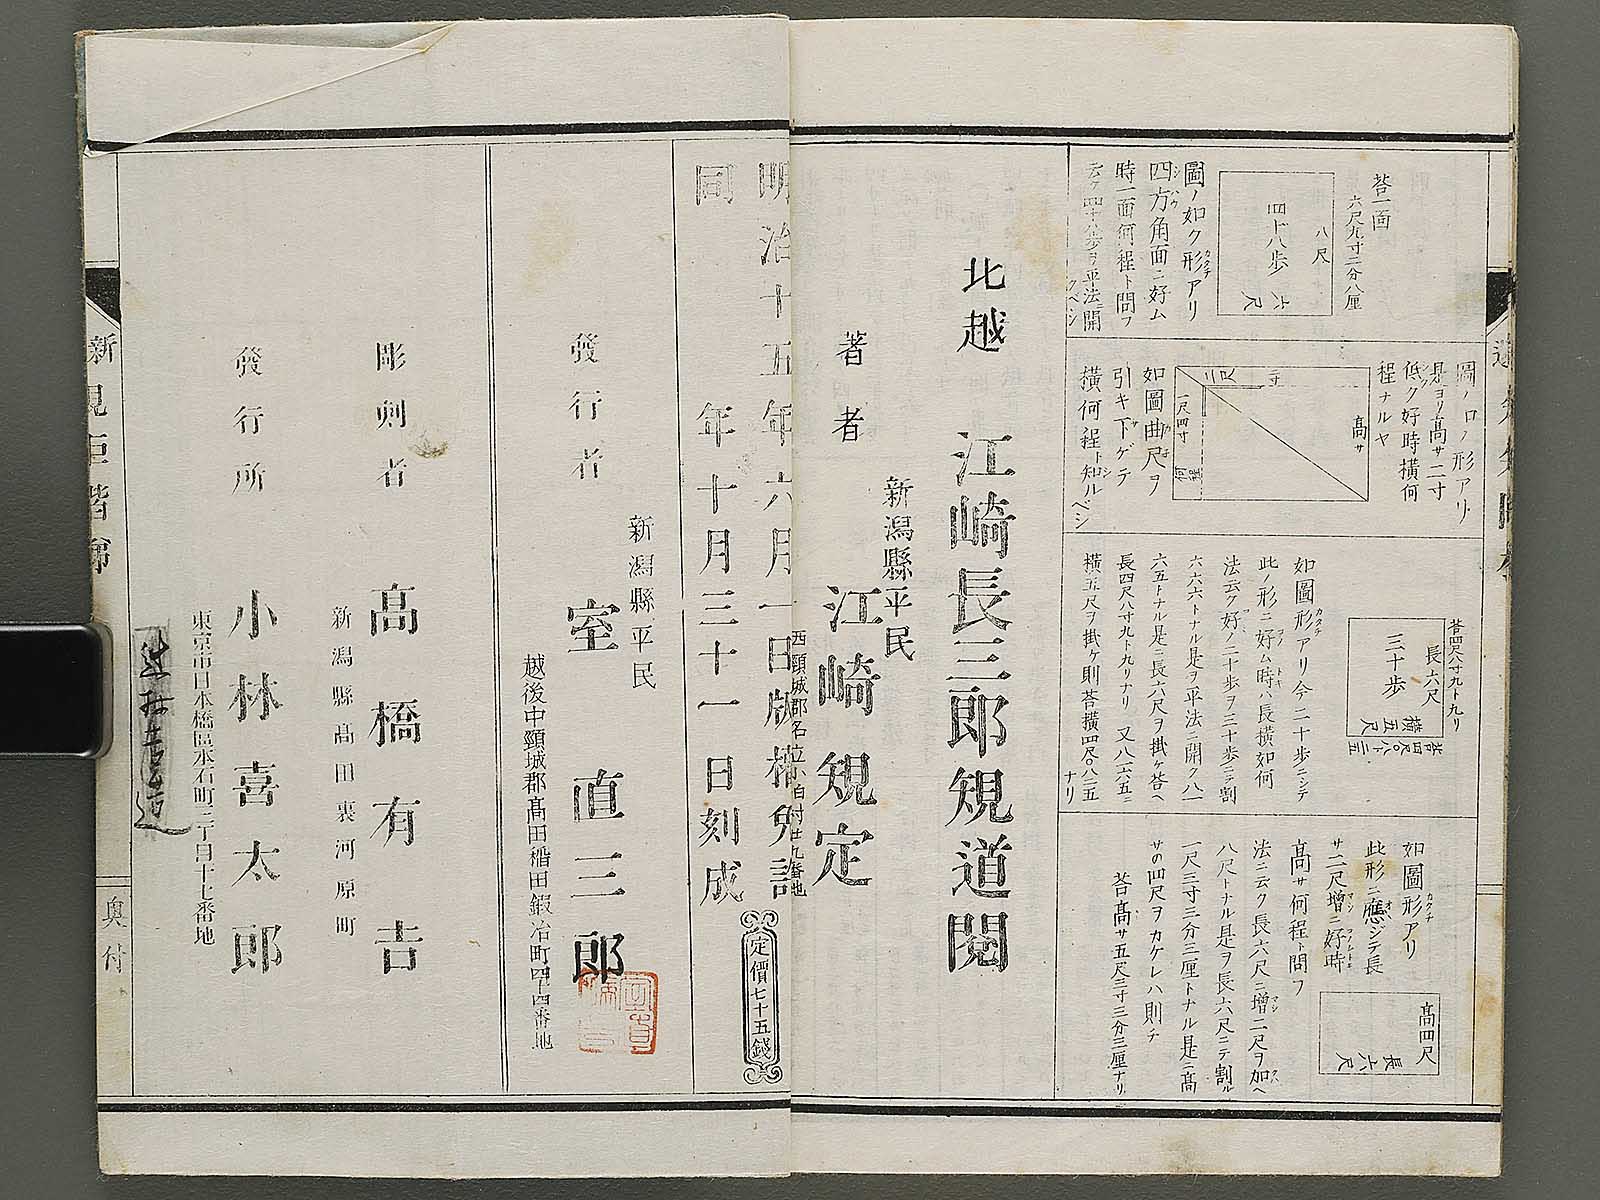 荅一面
六尺九寸二分八厘
八尺
四十八歩
六尺
圖ノ如ク形アリ
四方角面ニ好ム
時一面何程ト問フ
云ク四十八歩ヲ平法ニ開
クベシ
圖ノ口ノ形アリ
是ヨリ高サ二寸
低ク好時横何
程ナルヤ
高サ
二尺一寸
一尺四寸
何程
如圖曲尺ヲ
引キ下ゲテ
横何程ト知ルベシ
荅四尺八寸九ト九リ
長六尺
三十歩
横五尺
荅四尺〇八十二五
如圖形アリ今二十歩ニシテ
此ノ形ニ好ム時ハ長横如何
法云ク好ノ二十歩ヲ三十歩ニテ割
六六六トナル是ヲ平法ニ開ク八一
六五トナル是ニ長六尺ヲ掛ケ荅ヘ
長四尺八寸九ト九リナリ 又八一六五ニ
横五尺ヲ掛ケ則荅横四尺〇八二五
ナリ
如圖形アリ
此形ニ應ジテ長
サ二尺増ニ好時
高サ何程ト問フ
高四尺
長六尺
法ニ云ク長六尺ニ増二尺ヲ加ヘ
八尺トナル是ヲ長六尺ニテ割ル
一尺三寸三分三厘トナル是ニ高
サの四尺ヲカケレハ則チ
荅高サ五尺三寸三分三厘ナリ
北越 江崎長三郎規道閲
新潟縣平民
著者 江崎規定
西頸城郡名立小泊村廿九番地
明治十五年六月一日版權免許
同 年十月三十一日刻成
定價七十五錢
新潟縣平民
發行者 室直三郎
越後中頸城郡高田稲田鍜冶町四十四番地
彫刻者 高橋有吉
新潟縣高田裏河原町
發行所 小林喜太郎
東京市日本橋區本石町二丁目十七番地
奥付